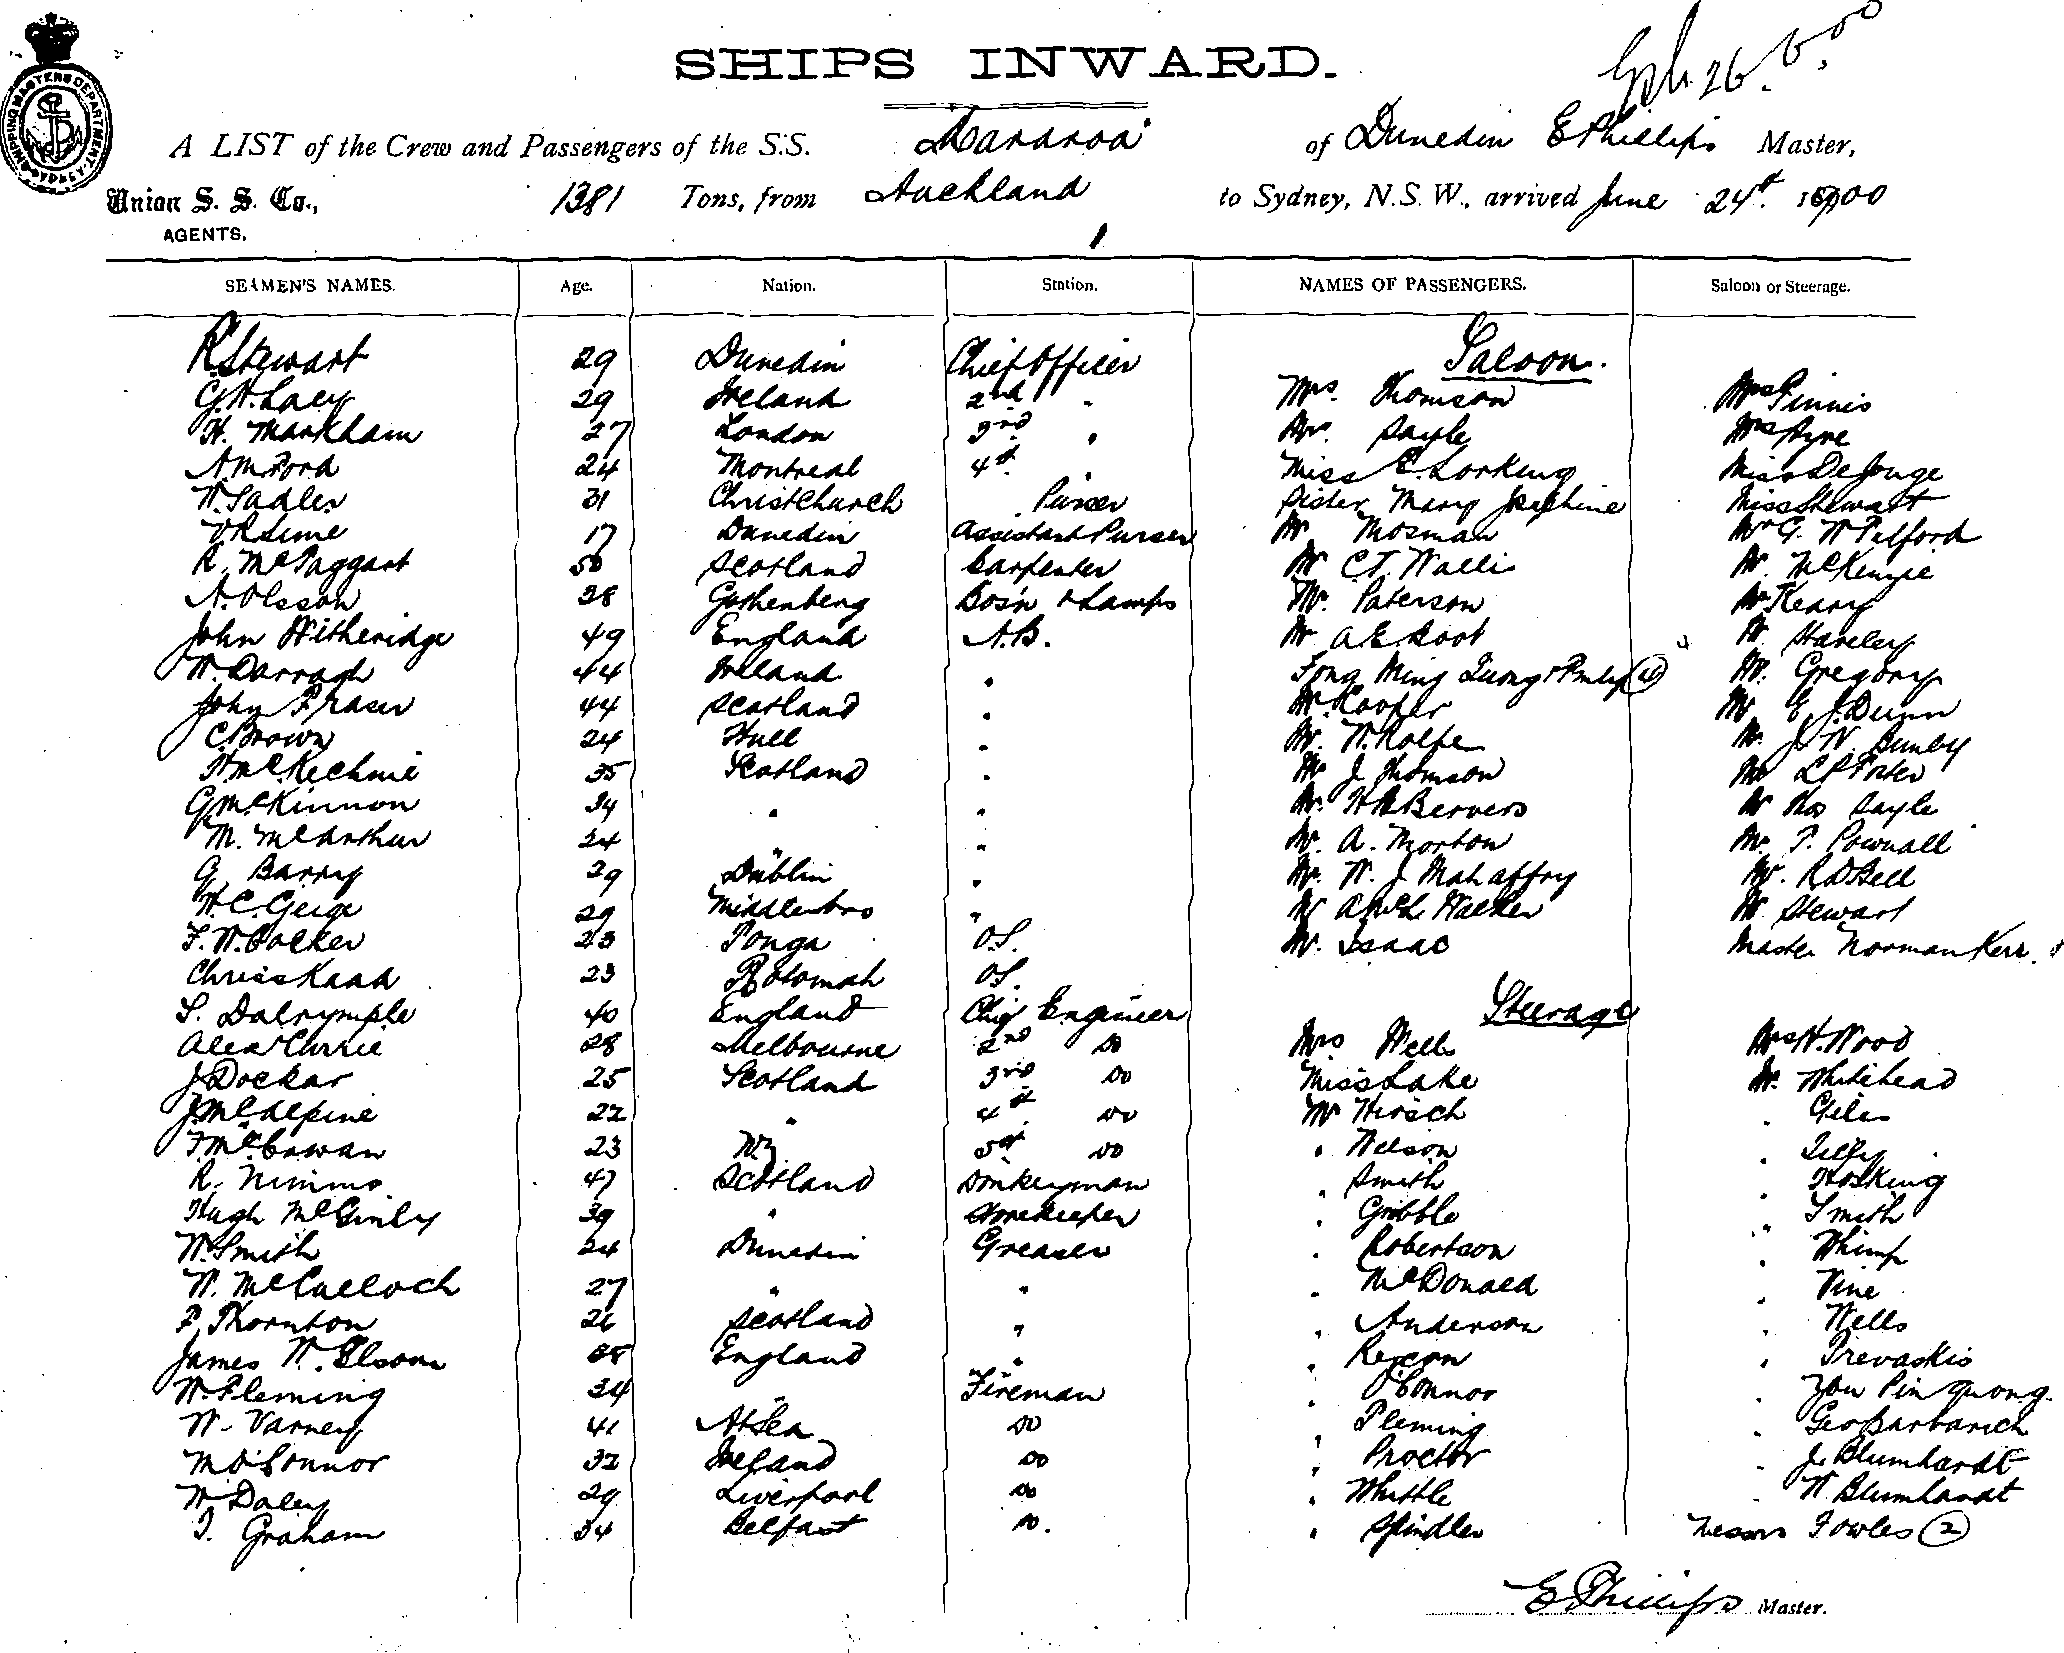 SHIPS INWARD.
A LIST of the Crew and Passengers of the S.S. Mararoa of Dunedin E Phillips Master,
Union S. S. Co., 1381 Tons, from Auckland to Sydney, N.S.W., arrived June 24th 1900
AGENTS.
SEAMEN'S NAMES. Age. Nation. Station. NAMES OF PASSENGERS. Saloon or Steerage.
R Stewart 29 Dunedin Chief Officer Saloon.
G.H. Lacy 29 Ireland 2nd " Mrs. Thomson Mrs Ginnis
H. Markham 27 London 3rd " Mrs. Sayle Mrs Ayre
A.M. Ford 24 Montreal 4th Miss E. Lorking Miss De Jonge
W. Sadler 31 Christchurch Purser Sister Mary Josephine Miss Stewart
Sime 17 Dunedin Assistant Purser Mr Mosman Mr G. W Telford
R. McTaggart 50 Scotland Carpenter Mr C.T. Wallis Mr. McKenzie
A. Olsson 38 Gothenberg Bos'n & Lamps Mr. Paterson Mr Keary
John Witheridge 49 England A.B. Mr A E Root Mr Haveley
W. Darragh 44 Ireland " Fong Ming Mr. Gregory
John Fraser 44 Scotland " Mr. Cooper Mr E. J. Dunn
C. Brown 24 Hull " Mr. W. Rolfe Mr. J. W. Bunby
H McKechnie 35 Scotland " Mr J. Thomson Mr L P Foster
G McKinnon 34 " " Mr. H Beavers Mr Thos Sayle
M. McArthur 24 " " Mr. A. Morton Mr. T. Pownall
G Barry 29 Dublin " Mr. W. J. Mahaffry Mr. R D Bell
H.C. Geige 29 Middlesbro " Mr A McL Walker Mr Stewart
F. W. Cocker 23 Tonga O.S. Mr. Isaac Master Norman Kerr.
Chriss Kaad 23 Rotomah O.S.
S. Dalrymple 40 England Chief Engineer Steerage
Alex Currie 28 Melbourne 2nd DO Mrs Wells Mrs W. Wood
J Dockar 25 Scotland 3rd DO Miss Lake Mr. Whitehead
J. McAlpine 22 " 4th DO Mr Hirsch " Giles
T. McCowan 23 NZ 5th DO " Nelson " Lilly
R. Nimmo 47 Scotland Donkeyman " Smith " Hosking
Hugh McGinly 39 " Storekeeper " Gribble " Smith
W. Smith 24 Dunedin Greaser " Robertson " Whimp
W. McCulloch 27 " " " McDonald " Vine
P. Thornton 26 Scotland " " Anderson " Wells
James W. Elsom 38 England " " " Trevaskis
W. Fleming 34 " Fireman " O'Connor " You Pin Quong
W. Varney 41 At Sea DO " Fleming " Geo Barbarich
M O'Connor 32 Ireland DO " Proctor " J. Blumhardt
W Daley 29 Liverpool DO " Whittle " W Blumhardt
T. Graham 34 Belfast DO. " Spindler Messrs Fowles (2)
E Phillips Master.